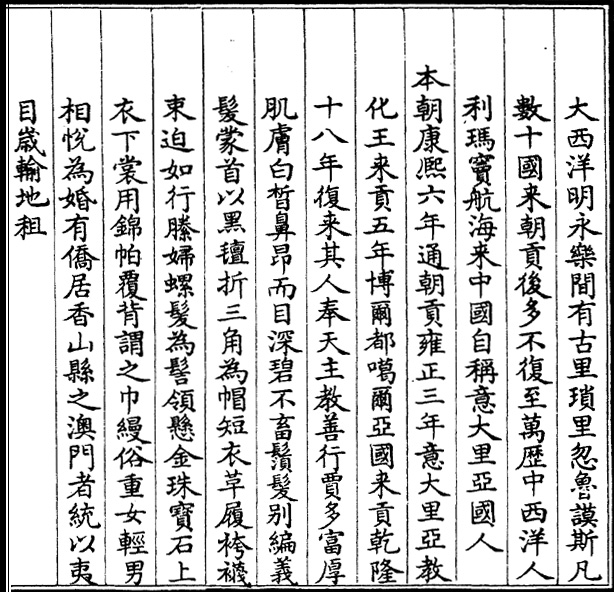 大西洋明永樂間有古里瑣里忽魯謨斯凡
數十國来朝貢後多不復至萬歴中西洋人
利瑪竇航海来中國自稱意大里亞國人
本朝康熈六年通朝貢雍正三年意大里亞教
化王来貢五年博爾都噶爾亞國来貢乾隆
十八年復来其人奉天主教善行賈多富厚
肌膚白皙鼻昂而目深碧不畜鬚髮别編義
髮蒙首以黑氊折三角為帽短衣革履袴襪
束迫如行縢婦螺髮為髻領懸金珠寶石上
衣下裳用錦帕覆背謂之巾縵俗重女輕男
相悅為婚有僑居香山縣之澳門者統以夷
目歲輸地租